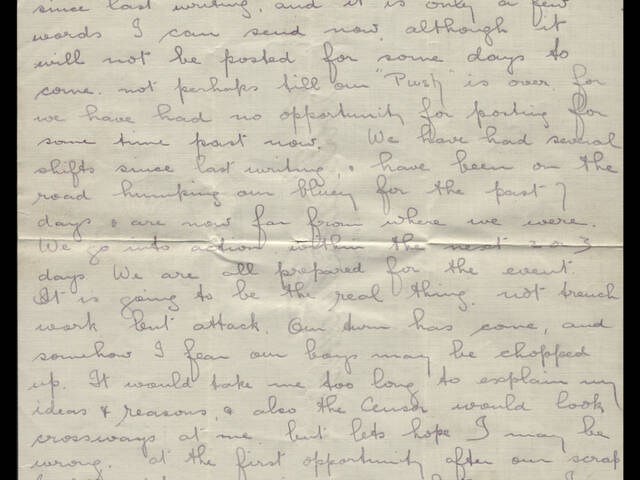 since last writing, and it is only a few
words I can send now, although it
will not be posted for some days to
come. not perhaps till our "Push" is over. for
we have had no opportunity for posting for
some time past now. We have had several
shifts since last writing, & have been on the
road humping our bluey for the past 7
days & are now far from where we were.
We go into action within the next 2 or 3
days We are all prepared for the event.
It is going to be the real thing. not trench
work but attack. Our turn has come, and
somehow I fear our boys may be chopped
up. It would take me too long to explain my
ideas & reasons, & also the Censor would look
crossways at me. but lets hope I may be
wrong. at the first opportunity after our scrap